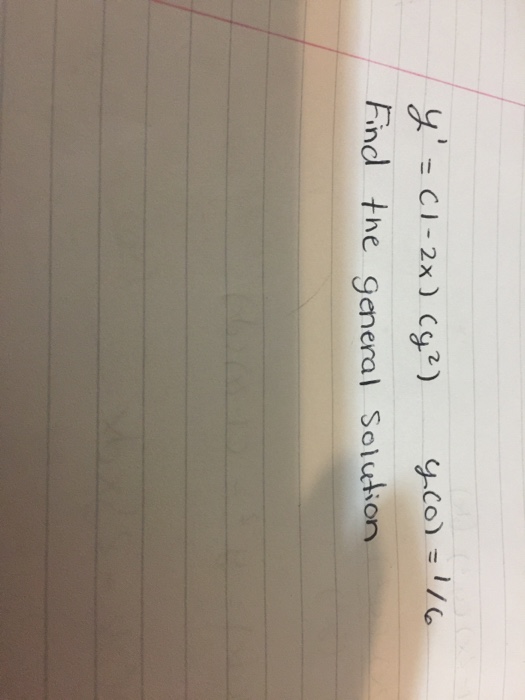 y' = (1-2x)(y²) y(0) = 1/6
Find the general solution